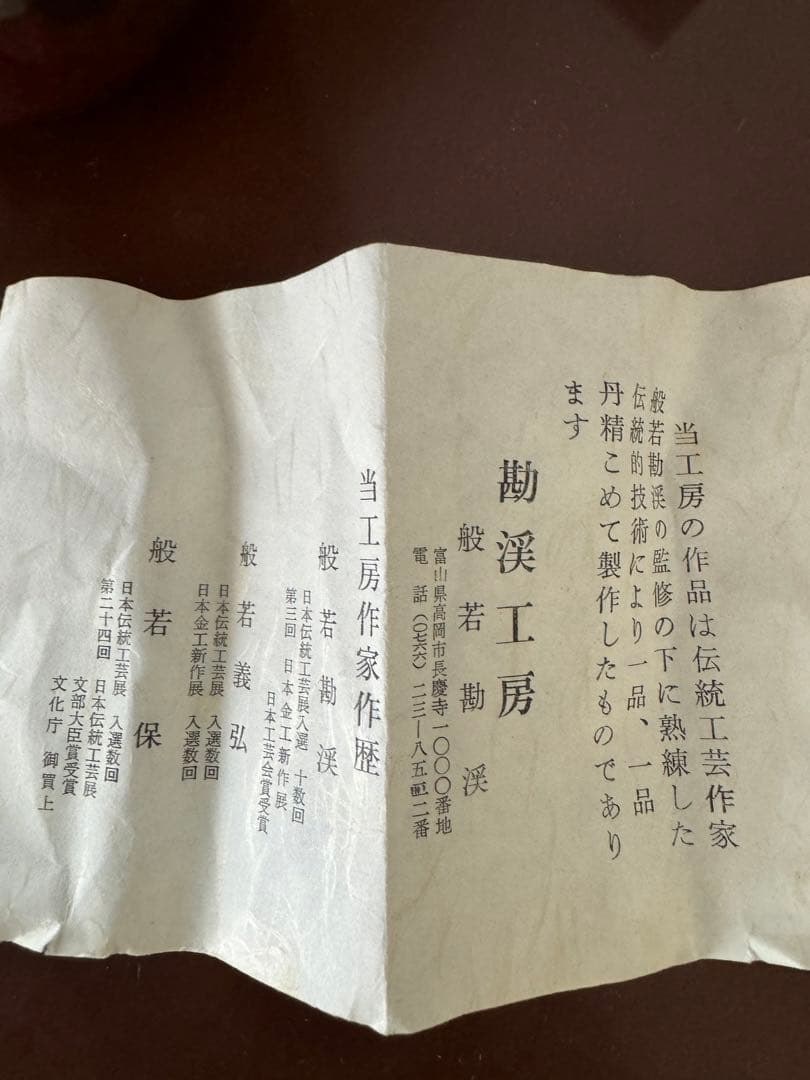 当工房の作品は伝統工芸作家
般若勘渓の監修の下に熟練した
伝統的技術により一品、一品
丹精こめて製作したものであり
ます
勘渓工房
般若勘渓
富山県高岡市長慶寺一〇〇〇番地
電話(〇七六六)二三―八五四二番
当工房作家作歴
般若勘渓
日本伝統工芸展入選 十数回
第三回 日本金工新作展
日本工芸会賞受賞
般若義弘
日本伝統工芸展 入選数回
日本金工新作展 入選数回
般若保
日本伝統工芸展 入選数回
第二十四回 日本伝統工芸展
文部大臣賞受賞
文化庁 御買上